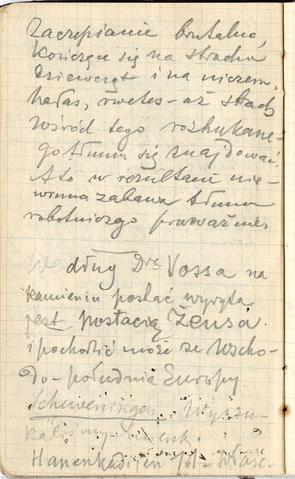 Zaczepianie brutalne,
kończące się na strachu
dziewcząt i na niczem,
hałas, rwetes – aż strach
wśród tego rozhukane-
go tłumu się znajdować.
A to w rezultacie nie-
winna zabawa tłumu
robotniczego przeważnie.
Według Dra Vossa na
kamieniu postać wyryta
jest postacią Zeusa.
i pochodzić może ze Wscho-
do-południa Europy
Scheveningen. Wyszu-